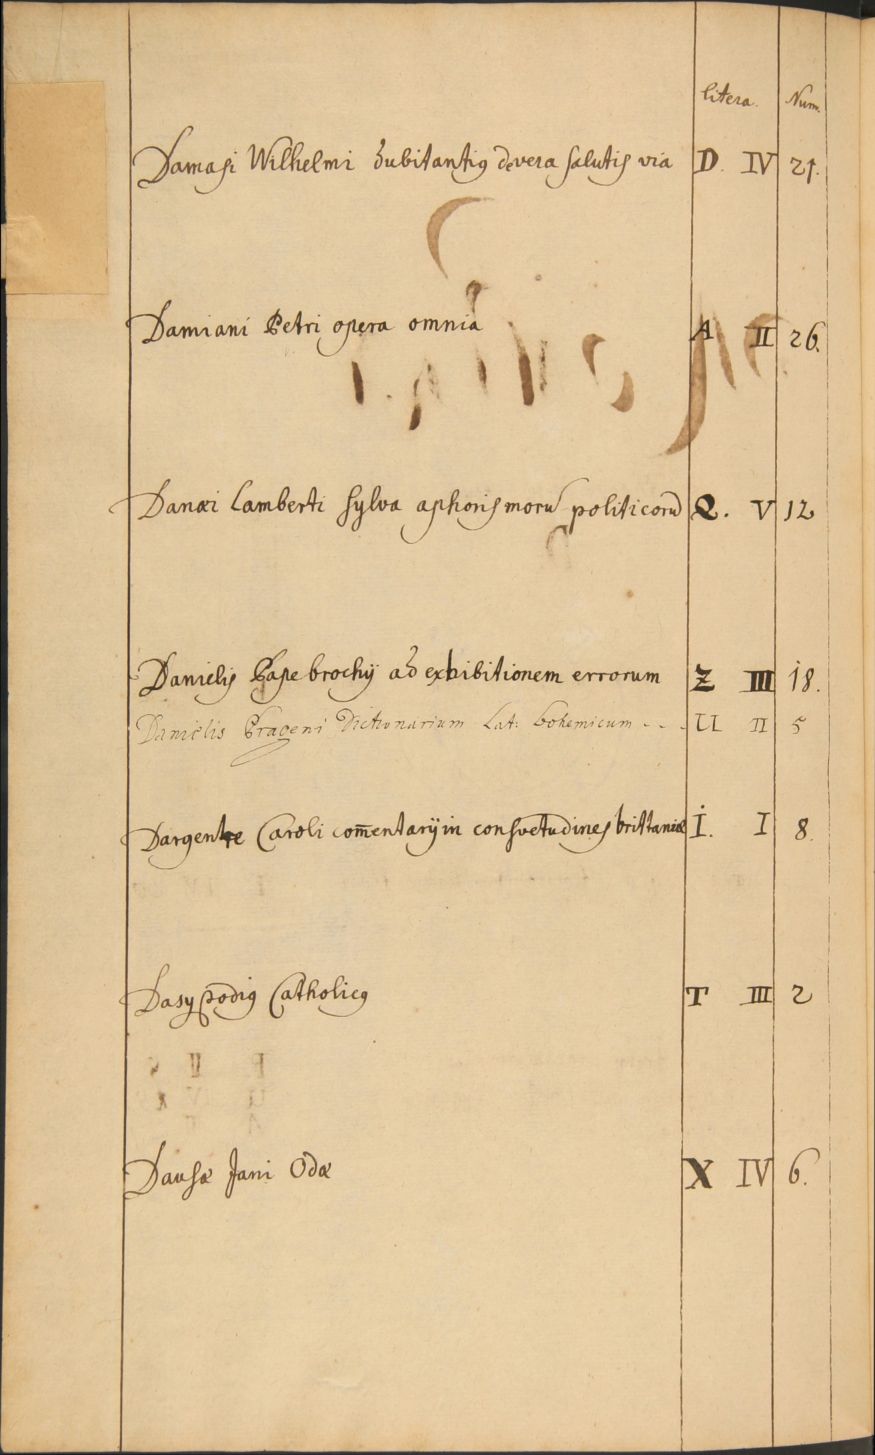 litera. Num.
Damasi Wilhelmi dubitantiꝯ de vera salutis via D. IV 21.
Damiani Petri opera omnia A II 26.
Danæi Lamberti sylva aphorismorū politicorū Q. V 12
Danielis Papebrochÿ ad exhibitionem errorum Z III 18.
Danielis Prageni Dictionarium Lat: bohemicum - - - U II 5
Dargentre Caroli com̄entarÿ in consvetudines brittaniæ I. I 8.
Dasypodiꝯ Catholicꝯ T III 2
Dausæ Jani Odæ X IV 6.